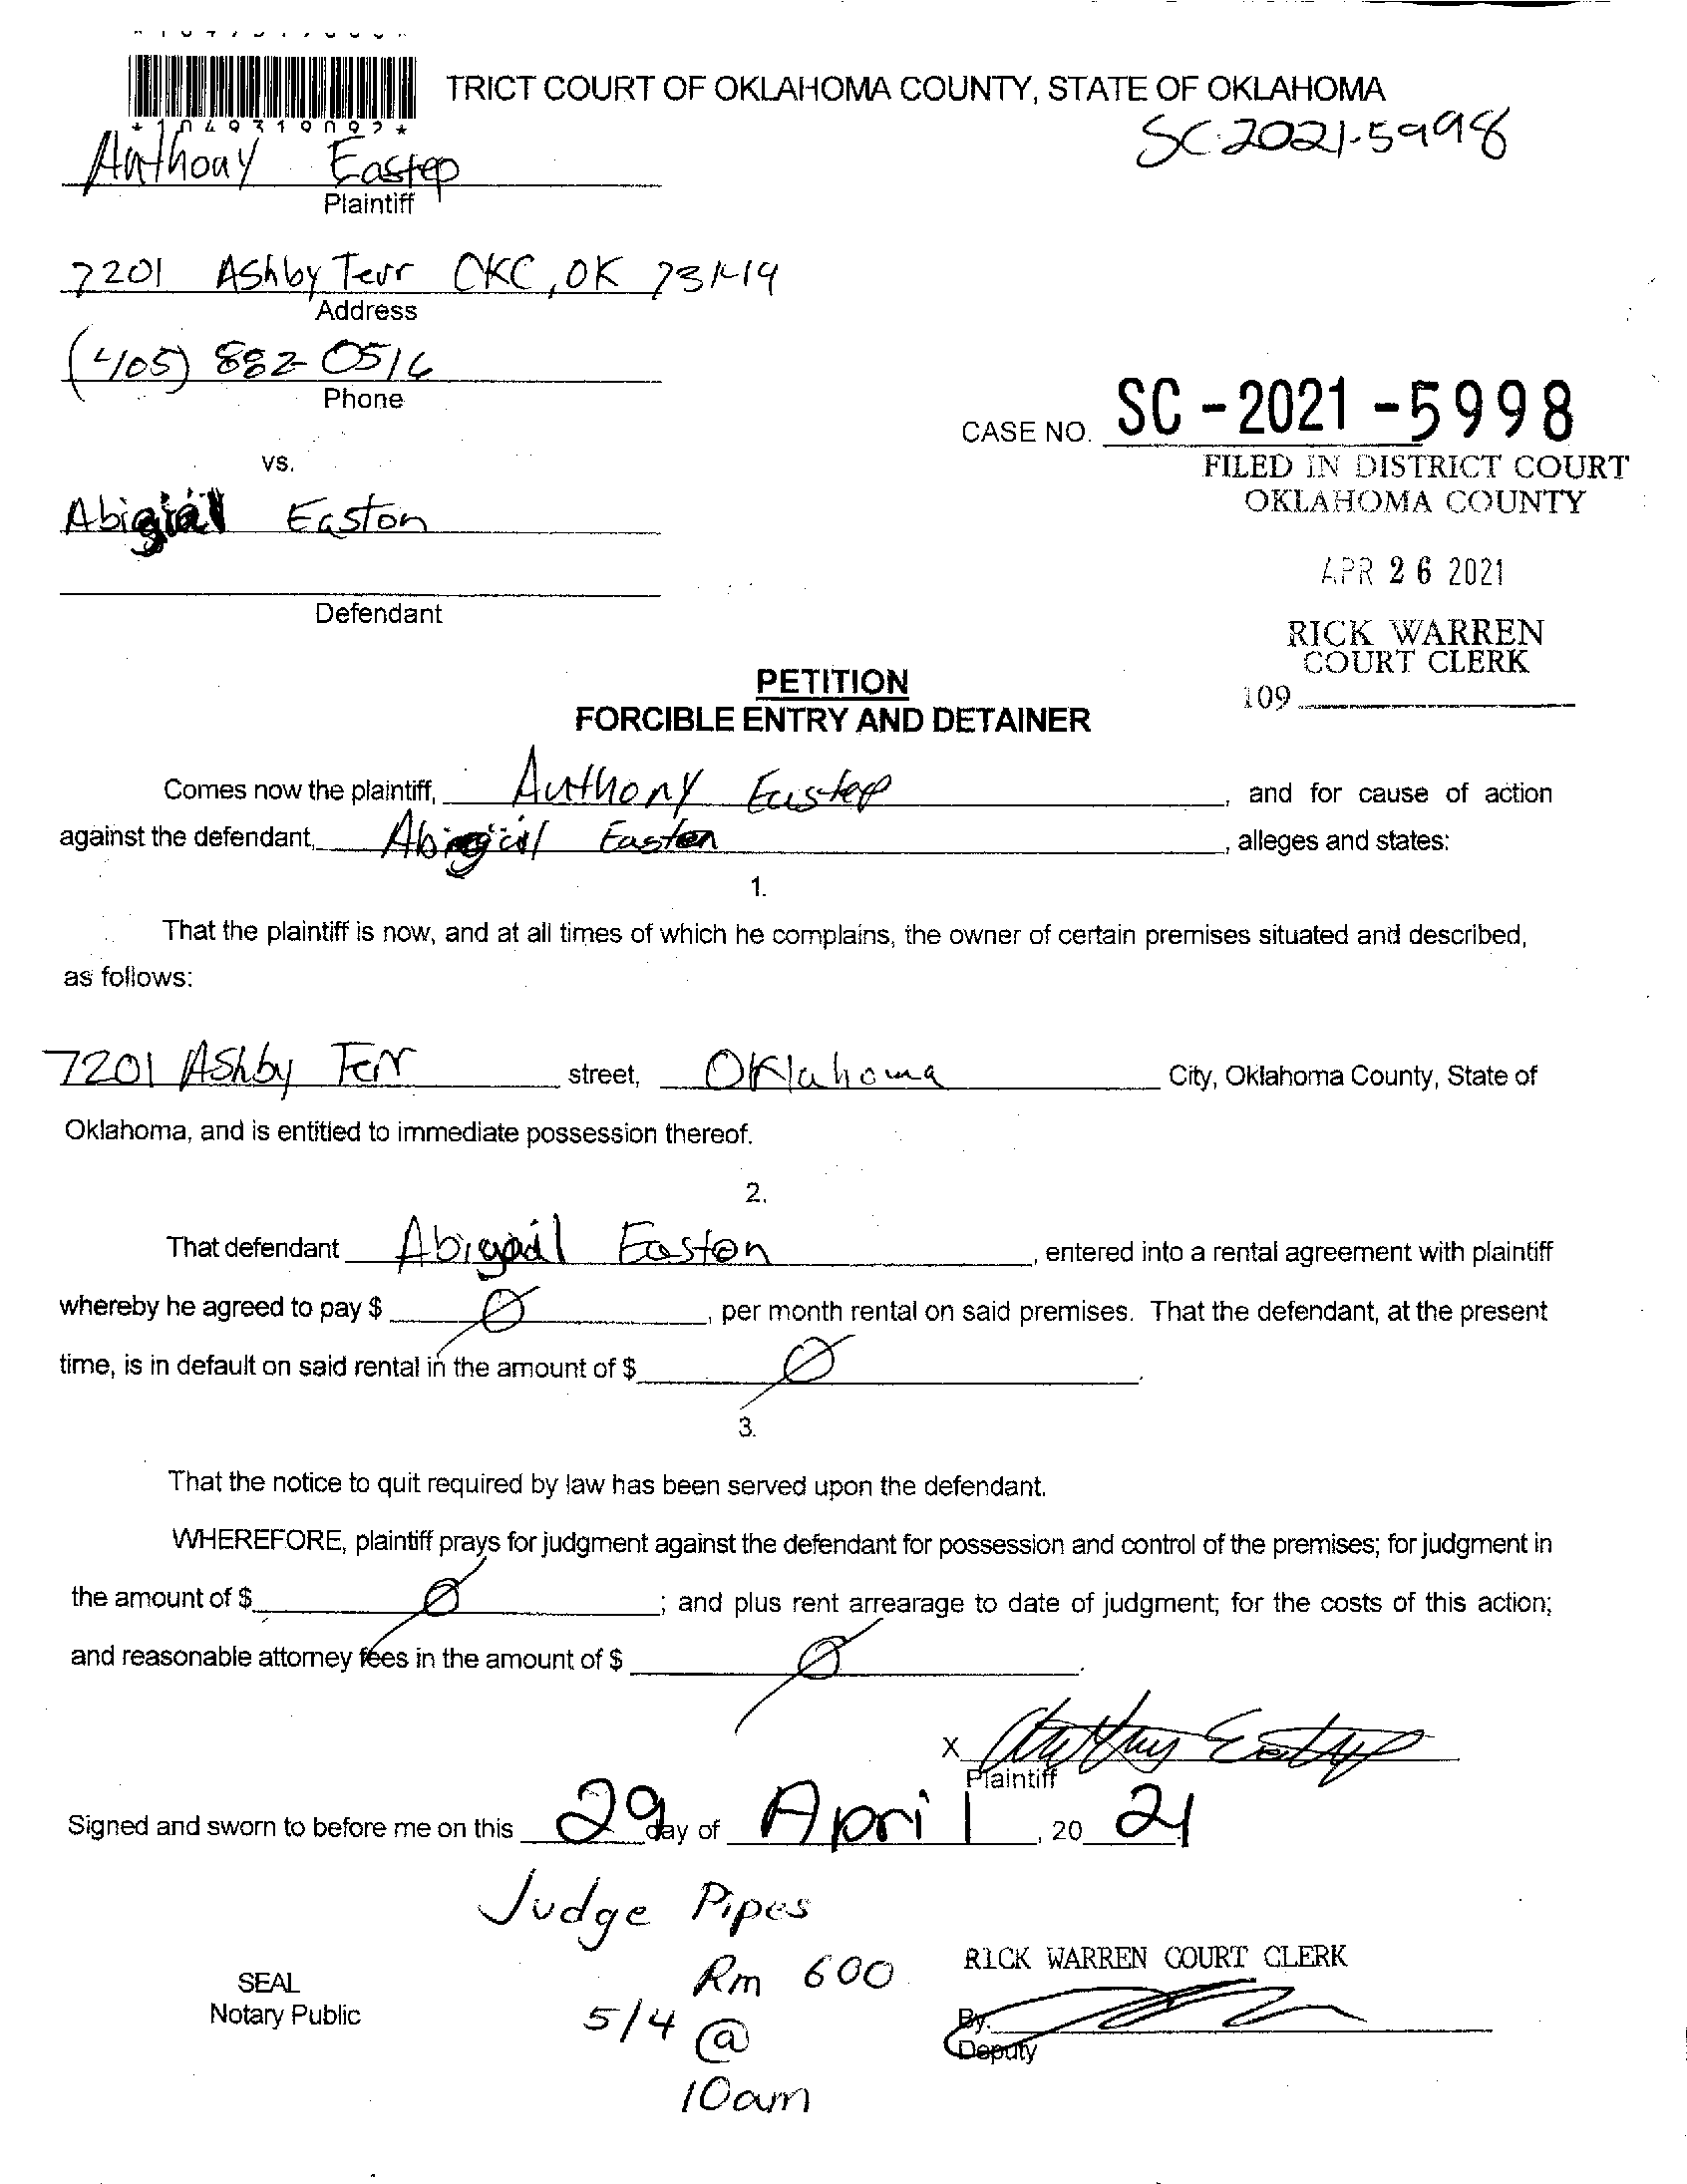 TRICT COURT OF OKLAHOMA COUNTY, STATE OF OKLAHOMA
*1049319092*
SC-2021-5998
Anthony Eastep
Plaintiff
7201 Ashby Terr OKC, OK 73149
Address
(405) 882-0516
Phone
CASE NO. SC-2021-5998
FILED IN DISTRICT COURT
OKLAHOMA COUNTY
vs.
Abigail Easton
APR 26 2021
Defendant
RICK WARREN
COURT CLERK
109
PETITION
FORCIBLE ENTRY AND DETAINER
Comes now the plaintiff, Anthony Eastep, and for cause of action
against the defendant, Abigail Easton, alleges and states:
1.
That the plaintiff is now, and at all times of which he complains, the owner of certain premises situated and described,
as follows:
7201 Ashby Terr street, Oklahoma City, Oklahoma County, State of
Oklahoma, and is entitled to immediate possession thereof.
2.
That defendant Abigail Easton, entered into a rental agreement with plaintiff
whereby he agreed to pay $ Ø, per month rental on said premises. That the defendant, at the present
time, is in default on said rental in the amount of $ Ø.
3.
That the notice to quit required by law has been served upon the defendant.
WHEREFORE, plaintiff prays for judgment against the defendant for possession and control of the premises; for judgment in
the amount of $ Ø; and plus rent arrearage to date of judgment; for the costs of this action;
and reasonable attorney fees in the amount of $ Ø.
X Anthony Eastep
Plaintiff
Signed and sworn to before me on this 29 day of April, 20 21
Judge Pipes
Rm 600
5/4 @
10am
SEAL
Notary Public
RICK WARREN COURT CLERK
By:
Deputy